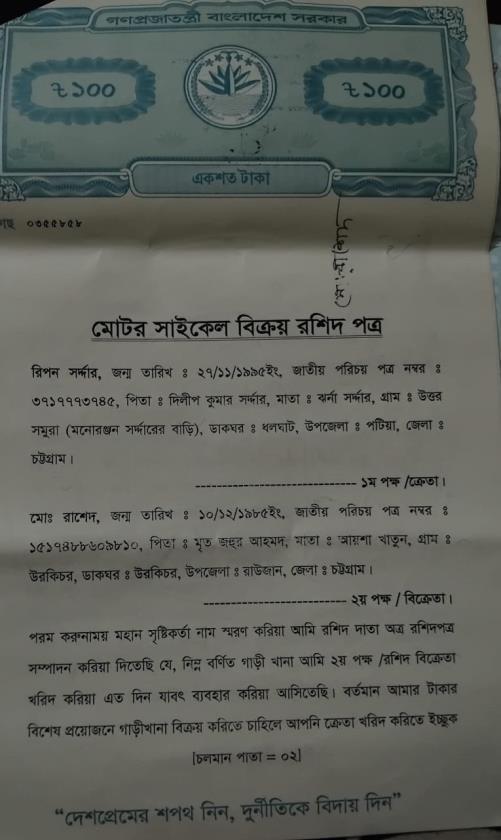 গণপ্রজাতন্ত্রী বাংলাদেশ সরকার
৳১০০ ৳১০০
একশত টাকা
০৩৫৫৮৫৮
মোটর সাইকেল বিক্রয় রশিদ পত্র
রিপন সর্দ্দার, জন্ম তারিখ ঃ ২৭/১১/১৯৯৫ইং, জাতীয় পরিচয় পত্র নম্বর ঃ
৩৭১৭৭৭৩৭৪৫, পিতা ঃ দিলীপ কুমার সর্দ্দার, মাতা ঃ ঝর্না সর্দ্দার, গ্রাম ঃ উত্তর
সমুরা (মনোরঞ্জন সর্দ্দারের বাড়ি), ডাকঘর ঃ ধলঘাট, উপজেলা ঃ পটিয়া, জেলা ঃ
চট্টগ্রাম।
------------------------------ ১ম পক্ষ /ক্রেতা।
মোঃ রাশেদ, জন্ম তারিখ ঃ ১০/১২/১৯৮৫ইং, জাতীয় পরিচয় পত্র নম্বর ঃ
১৫১৭৪৮৮৬০৯৮১০, পিতা ঃ মৃত জহুর আহমদ, মাতা ঃ আয়শা খাতুন, গ্রাম ঃ
উরকিচর, ডাকঘর ঃ উরকিচর, উপজেলা ঃ রাউজান, জেলা ঃ চট্টগ্রাম।
-------------------------- ২য় পক্ষ / বিক্রেতা।
পরম করুনাময় মহান সৃষ্টিকর্তা নাম স্মরণ করিয়া আমি রশিদ দাতা অত্র রশিদপত্র
সম্পাদন করিয়া দিতেছি যে, নিম্ন বর্ণিত গাড়ী খানা আমি ২য় পক্ষ /রশিদ বিক্রেতা
খরিদ করিয়া এত দিন যাবৎ ব্যবহার করিয়া আসিতেছি। বর্তমান আমার টাকার
বিশেষ প্রয়োজনে গাড়ীখানা বিক্রয় করিতে চাহিলে আপনি ক্রেতা খরিদ করিতে ইচ্ছুক
[চলমান পাতা = ০২]
“দেশপ্রেমের শপথ নিন, দুর্নীতিকে বিদায় দিন”